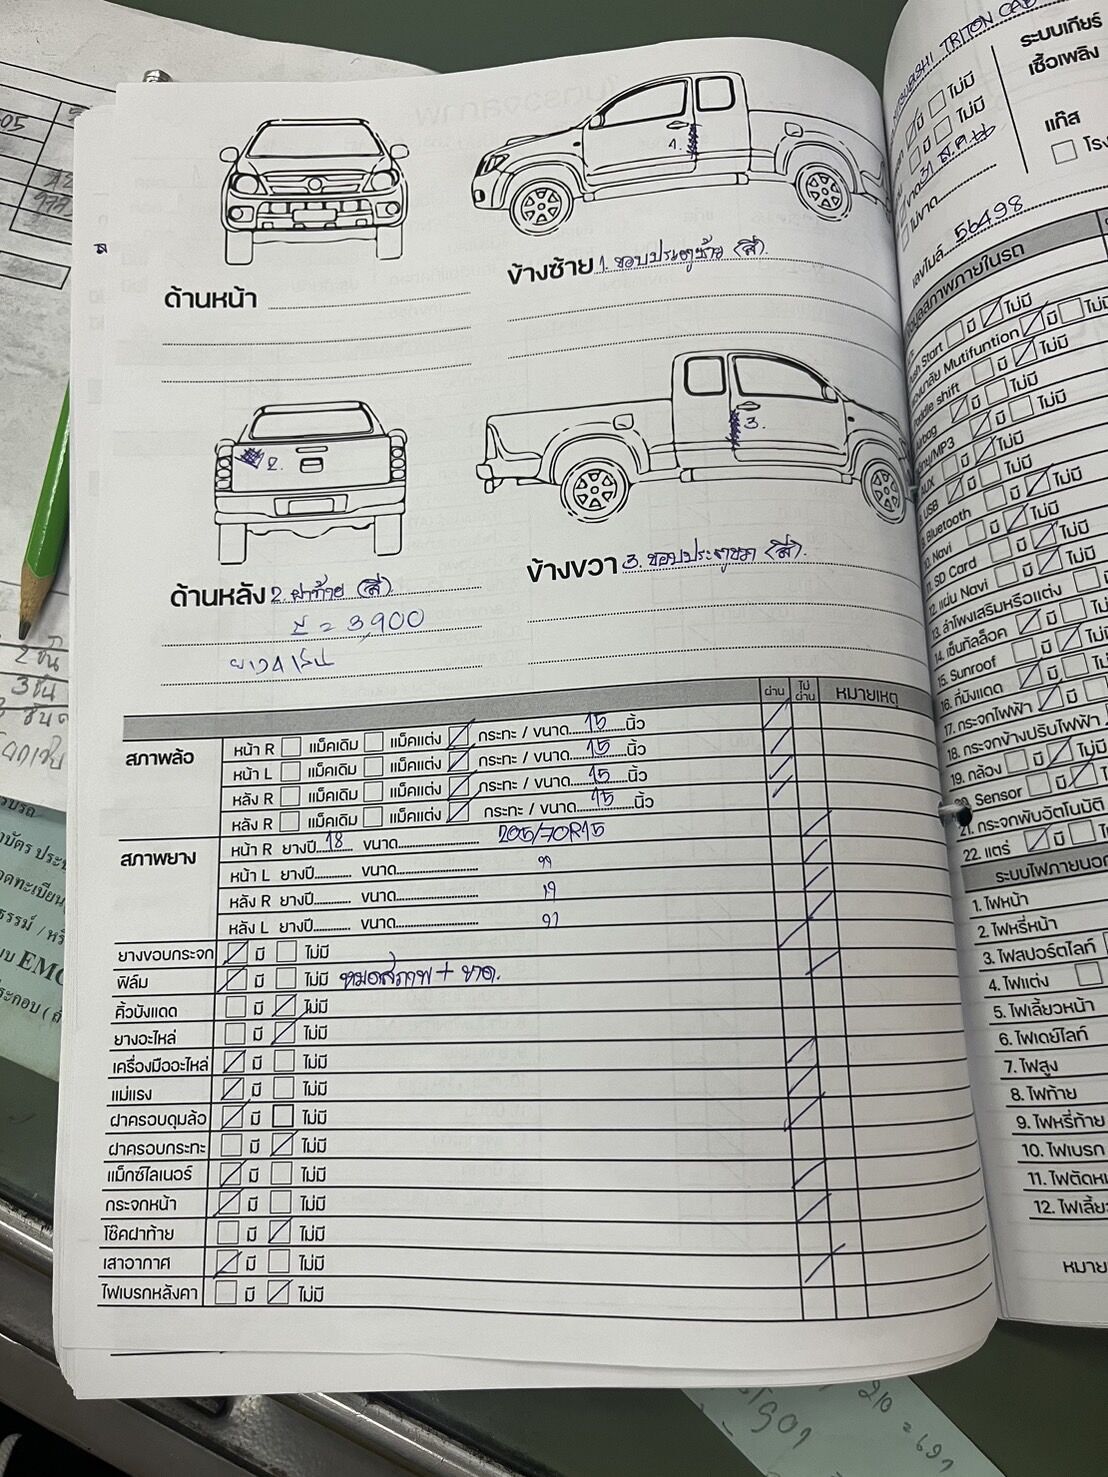 ด้านหน้า
ข้างซ้าย 1. ขอบประตูซ้าย (สี).
1.
2.
3.
ด้านหลัง 2. ฝาท้าย (สี).
สี = 3,900
ข้างขวา 3. ขอบประตูขวา (สี).
ผ่าน ไม่ผ่าน หมายเหตุ
สภาพล้อ
หน้า R แม็คเดิม แม็คแต่ง กระทะ / ขนาด 15 นิ้ว
หน้า L แม็คเดิม แม็คแต่ง กระทะ / ขนาด 15 นิ้ว
หลัง R แม็คเดิม แม็คแต่ง กระทะ / ขนาด 15 นิ้ว
หลัง R แม็คเดิม แม็คแต่ง กระทะ / ขนาด 15 นิ้ว
สภาพยาง
หน้า R ยางปี 18 ขนาด 205/70R15
หน้า L ยางปี ขนาด "
หลัง R ยางปี ขนาด "
หลัง L ยางปี ขนาด "
ยางขอบกระจก มี ไม่มี
ฟิล์ม มี ไม่มี หมดสภาพ + ขาด.
คิ้วบังแดด มี ไม่มี
ยางอะไหล่ มี ไม่มี
เครื่องมืออะไหล่ มี ไม่มี
แม่แรง มี ไม่มี
ฝาครอบดุมล้อ มี ไม่มี
ฝาครอบกระทะ มี ไม่มี
แม็กซ์ไลเนอร์ มี ไม่มี
กระจกหน้า มี ไม่มี
โช๊คฝาท้าย มี ไม่มี
เสาอากาศ มี ไม่มี
ไฟเบรกหลังคา มี ไม่มี
TRITON CAB
ระบบเกียร์
เชื้อเพลิง
แก๊ส
มี ไม่มี
มี ไม่มี
31 ส.ค. 66
ไม่ขาด
เลขไมล์ 56498
สภาพภายในรถ
Start มี ไม่มี
Mutifuntion มี ไม่มี
shift มี ไม่มี
มี ไม่มี
/MP3 มี ไม่มี
AUX มี ไม่มี
USB มี ไม่มี
Bluetooth มี ไม่มี
10. Navi มี ไม่มี
11. SD Card มี ไม่มี
12. แผ่น Navi
13. ลำโพงเสริมหรือแต่ง
14. เซ็นทัลล็อค มี
15. Sunroof มี ไม่มี
16. ที่บังแดด มี
17. กระจกไฟฟ้า มี
18. กระจกข้างปรับไฟฟ้า
19. กล้อง มี ไม่มี
20. Sensor มี ไม่มี
21. กระจกพับอัตโนมัติ
22. แตร์ มี
ระบบไฟภายนอก
1. ไฟหน้า
2. ไฟหรี่หน้า
3. ไฟสปอร์ตไลท์
4. ไฟแต่ง
5. ไฟเลี้ยวหน้า
6. ไฟเดย์ไลท์
7. ไฟสูง
8. ไฟท้าย
9. ไฟหรี่ท้าย
10. ไฟเบรก
2 ชั้น
3 ชั้น